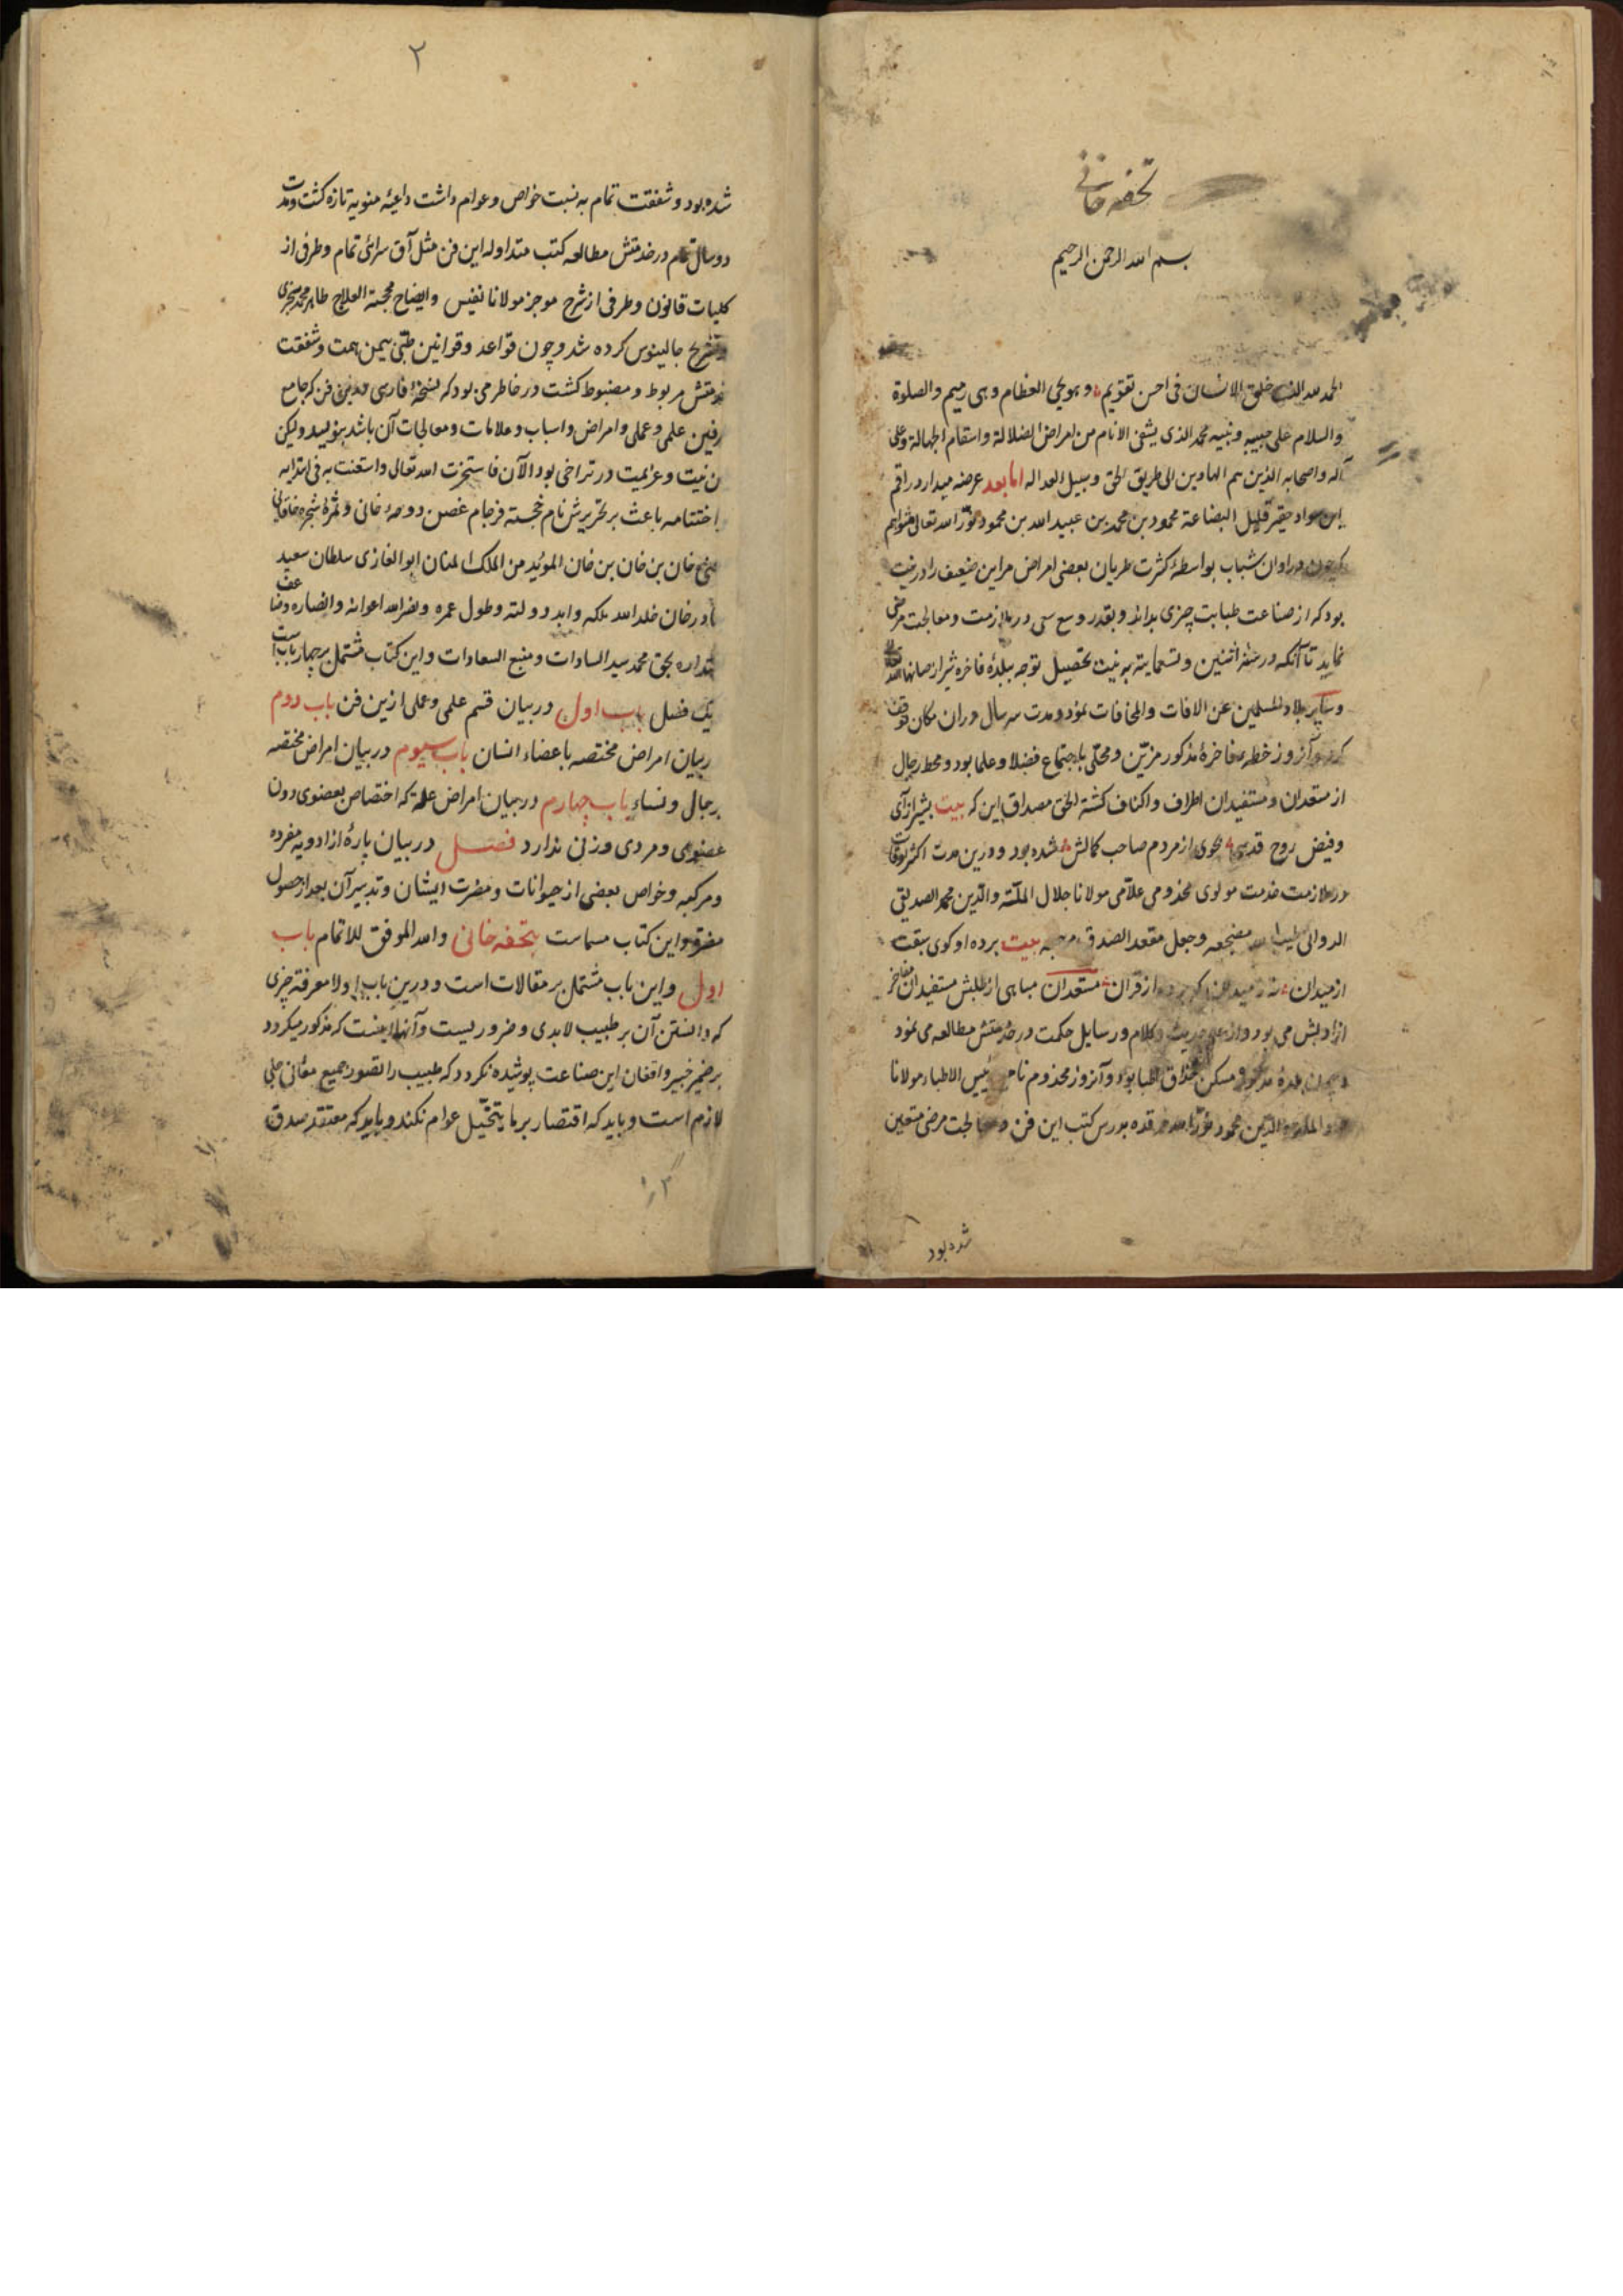 تحفه خانی
بسم الله الرحمن الرحیم
الحمد لله الذی خلق الانسان فی احسن تقویم و هو یحیی العظام وهی رمیم والصلوة
والسلام علی حبیبه و نبیه محمد الذی یشفی الانام من امراض الضلالة واسقام الجهالة وعلی
آله واصحابه الذین هم الهادین الی طریق الحق و سبیل العداله اما بعد عرضه میدارد راقم
این سواد حقیر قلیل البضاعة محمود بن محمد بن عبید الله بن محمود نور الله تعالی
که چون در اوان شباب بواسطهٔ کثرت طریان بعضی امراض مر این ضعیف را در
بود که از صناعت طبابت چیزی بداند و بقدر وسع سعی در ملازمت و معالجت مرضی
نماید تا آنکه در سنه اثنین و تسعمایة به نیت تحصیل توجه ببلدهٔ فاخره شیراز صانها الله
وسایر بلاد المسلمین عن الافات والمخافات نمود و مدت سه سال در ان مکان توقف
کرد و آنروز خطه فاخرهٔ مذکور مزین و محلی باجتماع فضلا و علما بود و محط رجال
از مستعدان و مستفیدان اطراف و اکناف کشته الحق مصداق این که بیت بشیراز آی
و فیض روح قدسی بجوی از مردم صاحب کمالش شده بود و درین مدت اکثر اوقات
در ملازمت خدمت مولوی مخدومی علامی مولانا جلال الملة والدین محمد الصدیقی
الدوانی طیب الله مضجعه وجعل مقعد الصدق بیت برده او کوی سبقت
از میدان از قران مستعدان مباهی از طلبش مستفیدان مفاخر
از ادبش می بود و از حدیث و کلام و رسایل حکمت در خدمتش مطالعه می نمود
بلدهٔ مذکور مسکن حذاق اطبا بود و آنروز مخدوم رئیس الاطباء مولانا
والدین محمود نور الله مرقده بدرس کتب این فن و معالجت مرضی متعین
شده بود
۲
شده بود و شفقت تمام به نسبت خواص و عوام داشت داعیهٔ منویه تازه کشت و مدت
دو سال تمام در خدمتش مطالعه کتب متداوله این فن مثل آق سرائی تمام و طرفی از
کلیات قانون و طرفی از شرح موجز مولانا نفیس و ایضاح محجة العلاج طاهر محمد سجزی
و تشریح جالینوس کرده شد و چون قواعد و قوانین طبی بیمن همت و شفقت
خدمتش مربوط و مضبوط کشت در خاطر می بود که نسخهٔ فارسی درین فن که جامع
طرفین علمی و عملی و امراض و اسباب و علامات و معالجات آن باشد بنویسد و لیکن
این نیت و عزایمت در تراخی بود الآن فاستخرت الله تعالی واستعنت به فی ابتدایه
و اختتامه باعث بر تحریرش نام خجسته فرجام غصن دوحهٔ خانی و ثمرهٔ شجره خاقانی
خان بن خان بن خان الموید من الملک المنان ابو الغازی سلطان سعید
بهادر خان خلد الله ملکه و ابد دولته وطول عمره ونصر الله اعوانه وانصاره وضاعف
اقتداره بحق محمد سید السادات و منبع السعادات و این کتاب مشتمل بر چهار باب است
و یک فصل باب اول در بیان قسم علمی و عملی ازین فن باب دوم
در بیان امراض مختصه باعضاء انسان باب سیوم در بیان امراض مختصه
برجال و نساء باب چهارم در بیان امراض عامه که اختصاص بعضوی دون
عضوی و مردی و زنی ندارد فصل در بیان پارهٔ از ادویه مفرده
و مرکبه و خواص بعضی از حیوانات و مضرت ایشان و تدبیر آن بعد از حصول
مضرت و این کتاب مسماست بتحفه خانی والله الموفق للاتمام باب
اول و این باب مشتمل بر مقالات است و درین باب اولا معرفة چیزی
که دانستن آن بر طبیب لابدی و ضروریست و آنها اینست که مذکور میکردد
بر ضمیر خبیر واقفان این صناعت پوشیده نکردد که طبیب را تصور جمیع معانی طبی
لازم است و باید که اقتصار بر ما یتخیل عوام نکند و باید که معتقد صدق